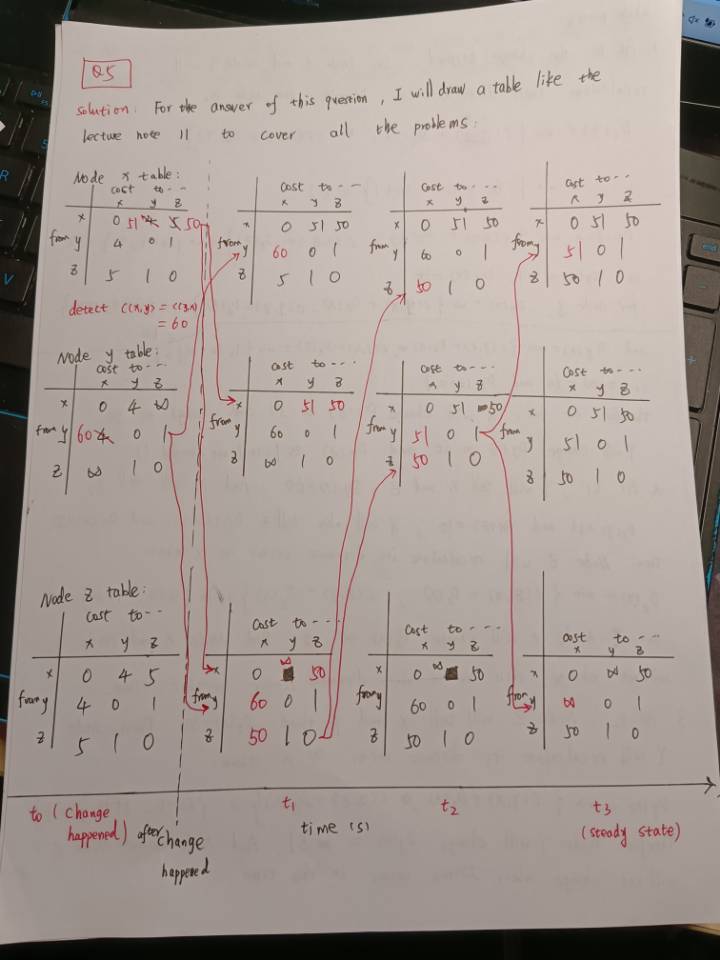 Q5
solution: For the answer of this question, I will draw a table like the
lecture note 11 to cover all the problems:
Node x table:
cost to ...
x y z
x 0 51 4 5 50
from y 4 0 1
z 5 1 0
detect c(x,y) = c(y,x)
= 60
cost to ...
x y z
x 0 51 50
from y 60 0 1
z 5 1 0
cost to ...
x y z
x 0 51 50
from y 60 0 1
z 50 1 0
cost to ...
x y z
x 0 51 50
from y 51 0 1
z 50 1 0
Node y table:
cost to ...
x y z
x 0 4 ∞
from y 60 4 0 1
z ∞ 1 0
cost to ...
x y z
x 0 51 50
from y 60 0 1
z ∞ 1 0
cost to ...
x y z
x 0 51 50
from y 51 0 1
z 50 1 0
cost to ...
x y z
x 0 51 50
from y 51 0 1
z 50 1 0
Node z table:
cost to ...
x y z
x 0 4 5
from y 4 0 1
z 5 1 0
cost to ...
x y z
x 0 ∞ 50
from y 60 0 1
z 50 1 0
cost to ...
x y z
x 0 ∞ 50
from y 60 0 1
z 50 1 0
cost to ...
x y z
x 0 ∞ 50
from y ∞ 0 1
z 50 1 0
to (change
happened)
after change
happened
t1
time (s)
t2
t3
(steady state)